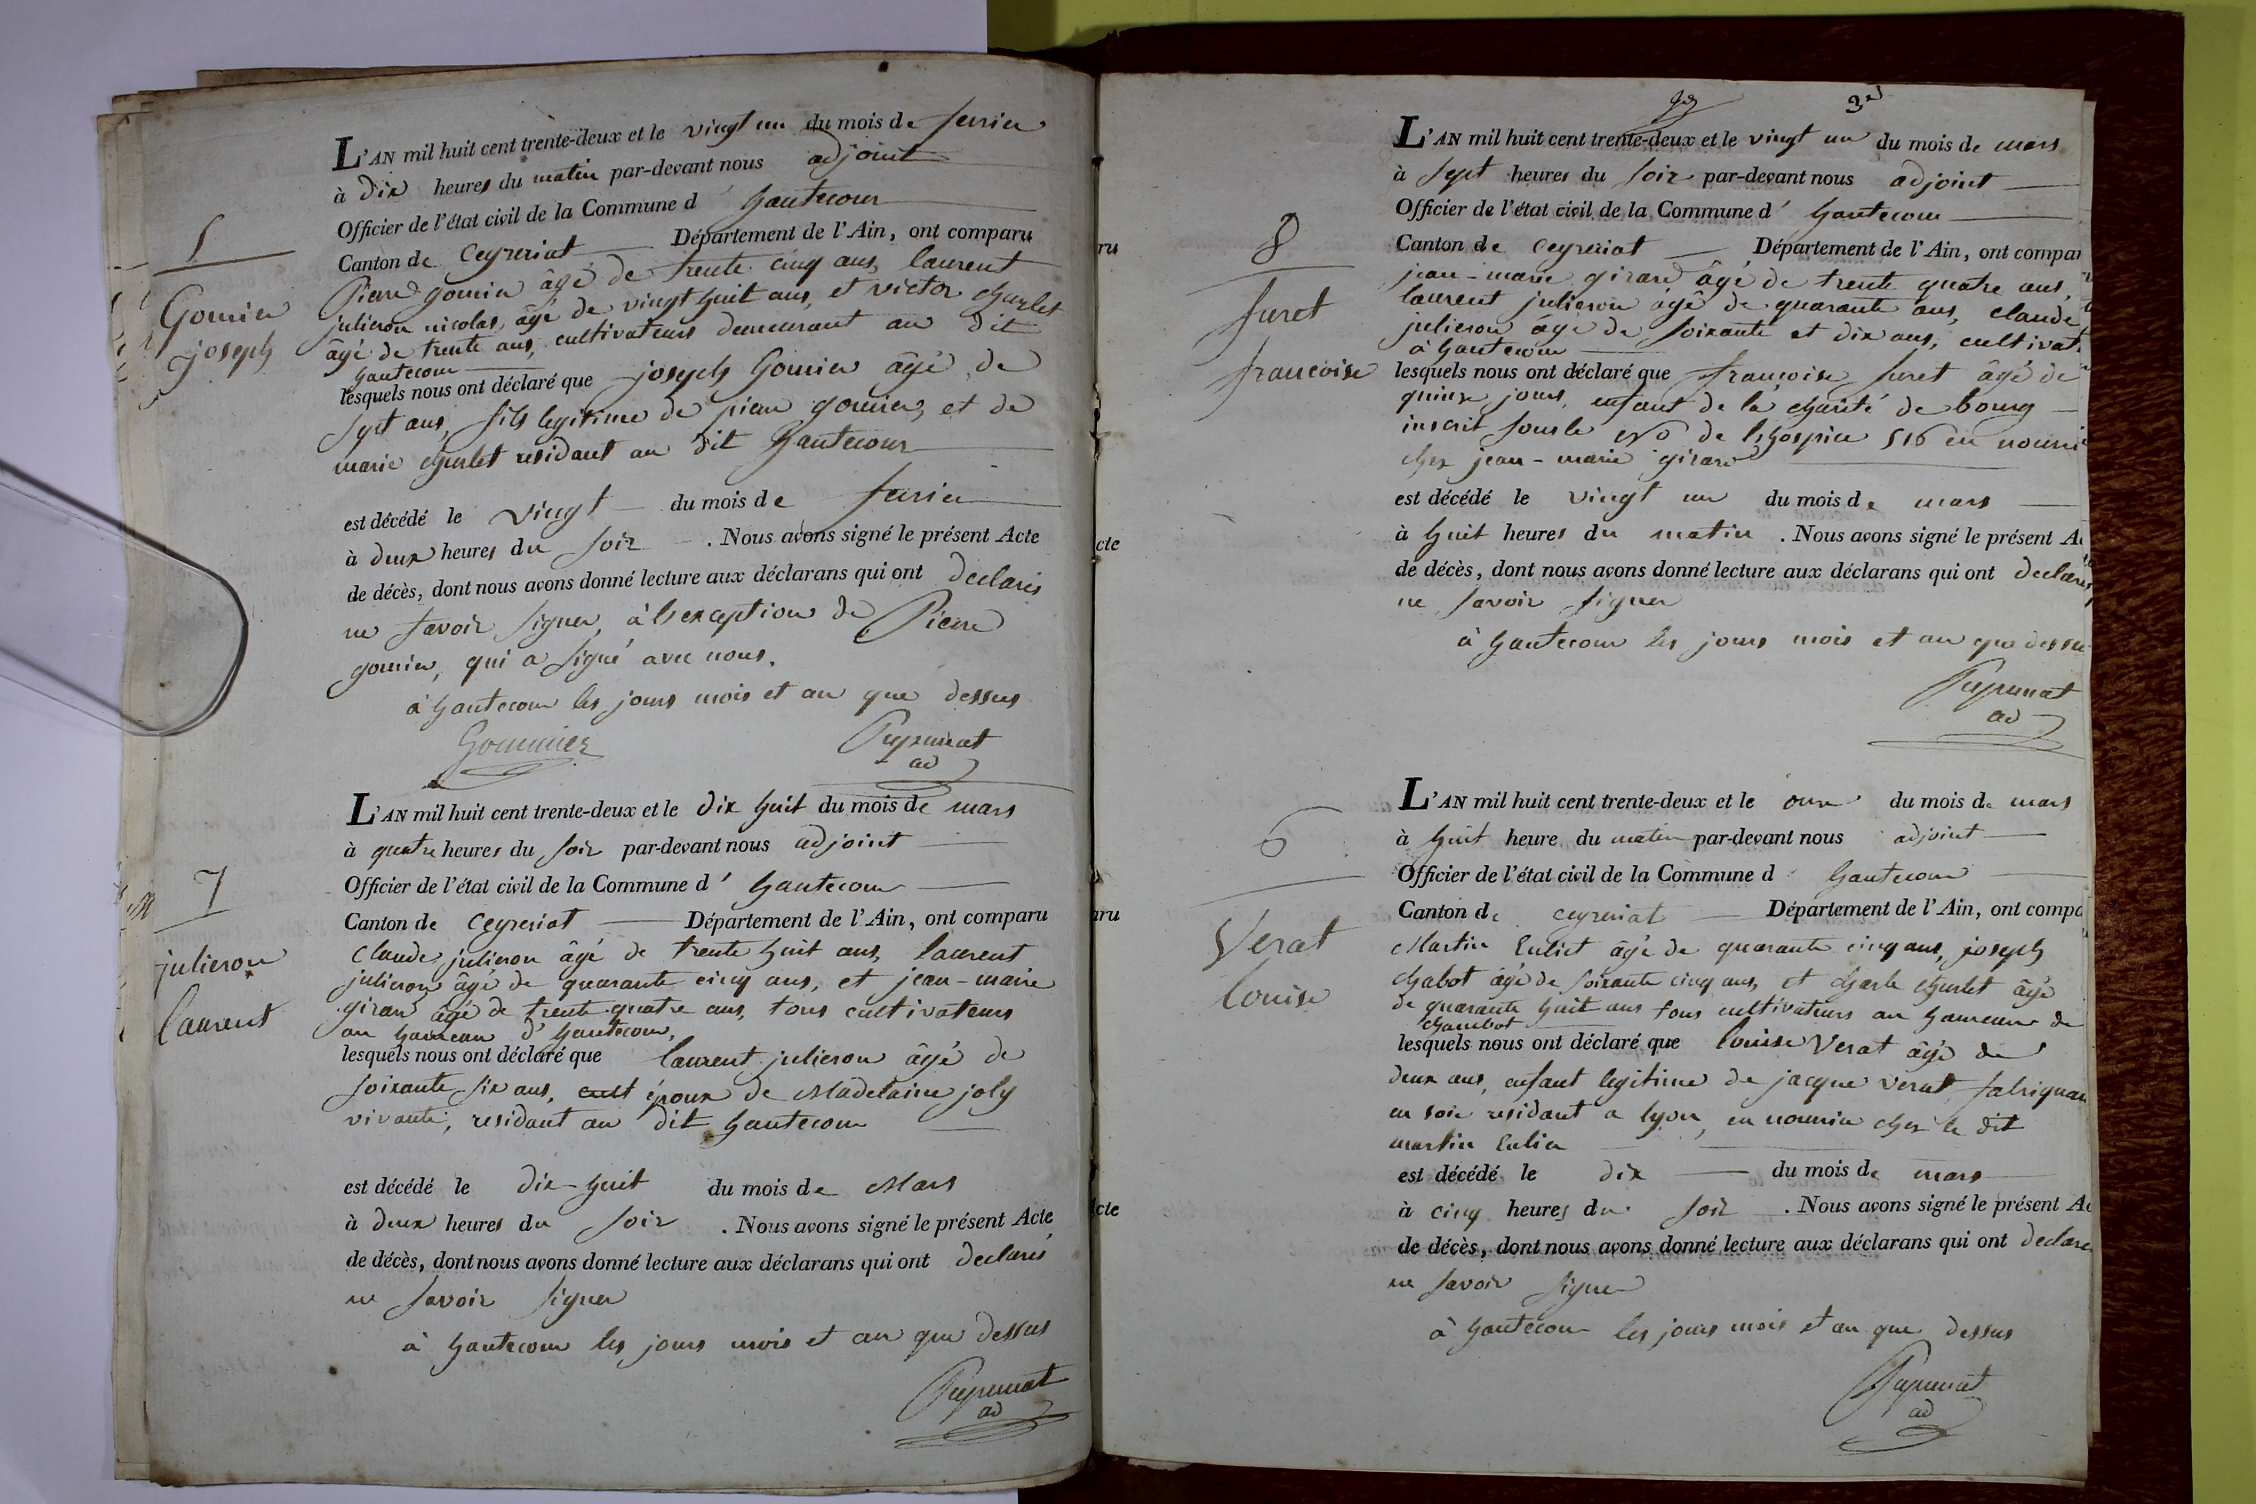 5
Gomier
joseph
L'AN mil huit cent trente-deux et le vingt un du mois de fevrier
à dix heures du matin par-devant nous adjoint
Officier de l'état civil de la Commune d' hautecour
Canton de Ceyzeriat Département de l'Ain, ont comparu
Pierre gomier âgé de trente cinq ans, laurent
julieron nicolas, âgé de vingt huit ans, et victor churlet
âgé de trente ans, cultivateurs demeurant au dit
hautecour
lesquels nous ont déclaré que joseph Gomier âgé de
sept ans, fils legitime de pierre gomier, et de
marie churlet residant au dit hautecour
est décédé le vingt du mois de fevrier
à deux heures du soir . Nous avons signé le présent Acte
de décès, dont nous avons donné lecture aux déclarans qui ont declarés
ne savoir signer, à l'exception de Pierre
gomier, qui a signé avec nous.
à hautecour les jours mois et an que dessus
Gommier
ad
7
julieron
laurent
L'AN mil huit cent trente-deux et le dix huit du mois de mars
à quatre heures du soir par-devant nous adjoint
Officier de l'état civil de la Commune d' hautecour
Canton de Ceyzeriat Département de l'Ain, ont comparu
Claude julieron âgé de trente huit ans, laurent
julieron âgé de quarante cinq ans, et jean-marie
girard âgé de trente quatre ans, tous cultivateurs
au hameau d'hautecour,
lesquels nous ont déclaré que laurent julieron âgé de
soixante six ans, cult époux de Madelaine joly
vivante, residant au dit hautecour
est décédé le dix-huit du mois de Mars
à deux heures du soir . Nous avons signé le présent Acte
de décès, dont nous avons donné lecture aux déclarans qui ont declarés
ne savoir signer
à hautecour les jours mois et an que dessus
ad
ru
cte
aru
cte
8
furet
francoise
L'AN mil huit cent trente-deux et le vingt un du mois de mars
à sept heures du soir par-devant nous adjoint
Officier de l'état civil de la Commune d' hautecour
Canton de Ceyzeriat Département de l'Ain, ont compar
jean-marie girard âgé de trente quatre ans,
laurent julieron âgé de quarante ans, claude
julieron âgé de soixante et dix ans, cultivat
à hautecour
lesquels nous ont déclaré que françoise furet âgé de
quinze jours, enfant de la charité de bourg
inscrit sous le No de l'hospice 516 en nourri
chez jean-marie girard
est décédé le vingt un du mois de mars
à huit heures du matin . Nous avons signé le présent A
de décès, dont nous avons donné lecture aux déclarans qui ont declarés
ne savoir signer
à hautecour les jours mois et an que dessu
ad
6
Verat
louise
L'AN mil huit cent trente-deux et le onze du mois de mars
à huit heure du matin par-devant nous adjoint
Officier de l'état civil de la Commune d hautecour
Canton de ceyzeriat Département de l'Ain, ont compa
Martin âgé de quarante cinq ans, joseph
chabot âgé de soixante cinq ans, et charle churlet âgé
de quarante huit ans tous cultivateurs au hameau de
chambot
lesquels nous ont déclaré que louise Verat âgé de
deux ans, enfant legitime de jacque verat, fabriquan
en soie residant a lyon, en nourrice chez le dit
martin
est décédé le dix du mois de mars
à cinq heures du soir . Nous avons signé le présent Ac
de décès, dont nous avons donné lecture aux déclarans qui ont declare
ne savoir signer
à hautecour les jours mois et an que dessus
ad